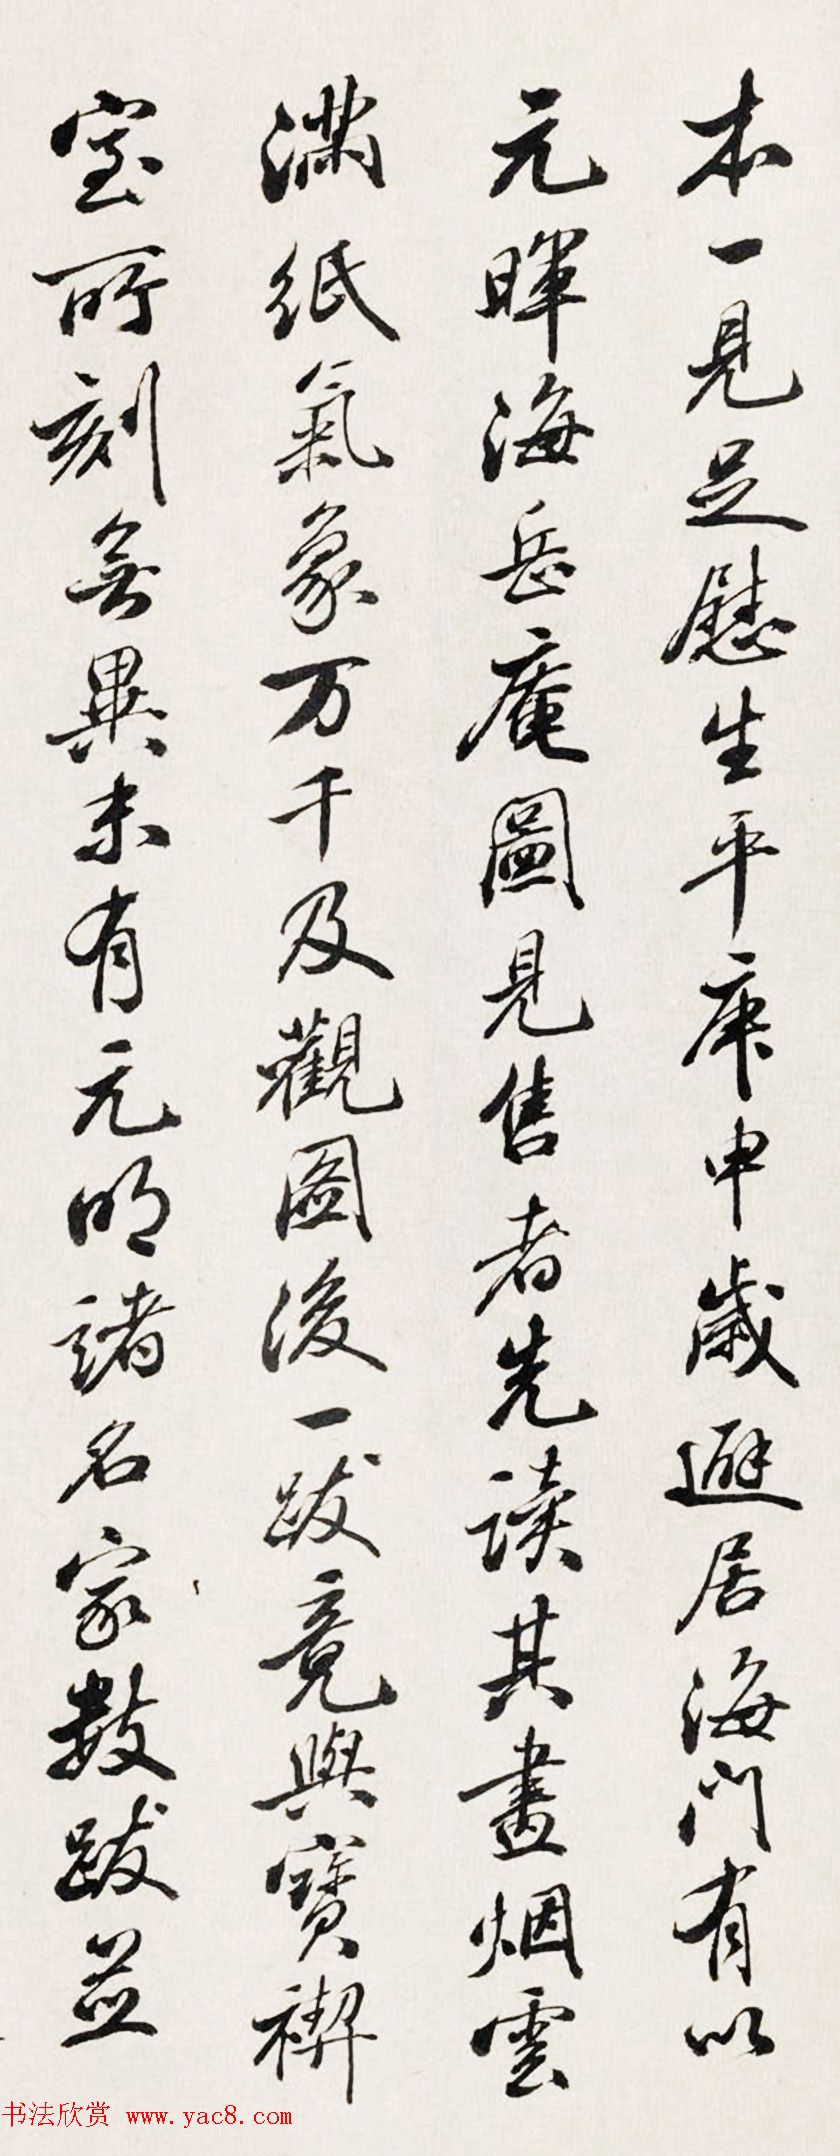 本一見足慰生平庚申歲避居海門有以
元暉海岳庵圖見售者先读其畫烟雲
满紙氣象万千及觀圖後一跋竟與寶禊
室所刻無異末有元明諸名家數跋並
书法欣赏 www.yac8.com